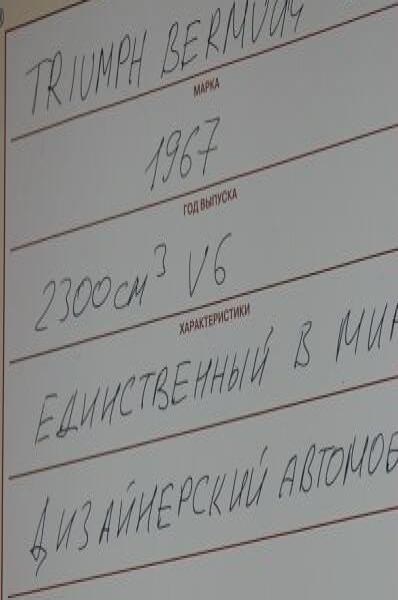 TRIUMPH BERMUDA
МАРКА
1967
ГОД ВЫПУСКА
2300 см³ V6
ХАРАКТЕРИСТИКИ
ЕДИНСТВЕННЫЙ В МИР
ДИЗАЙНЕРСКИЙ АВТОМОБ